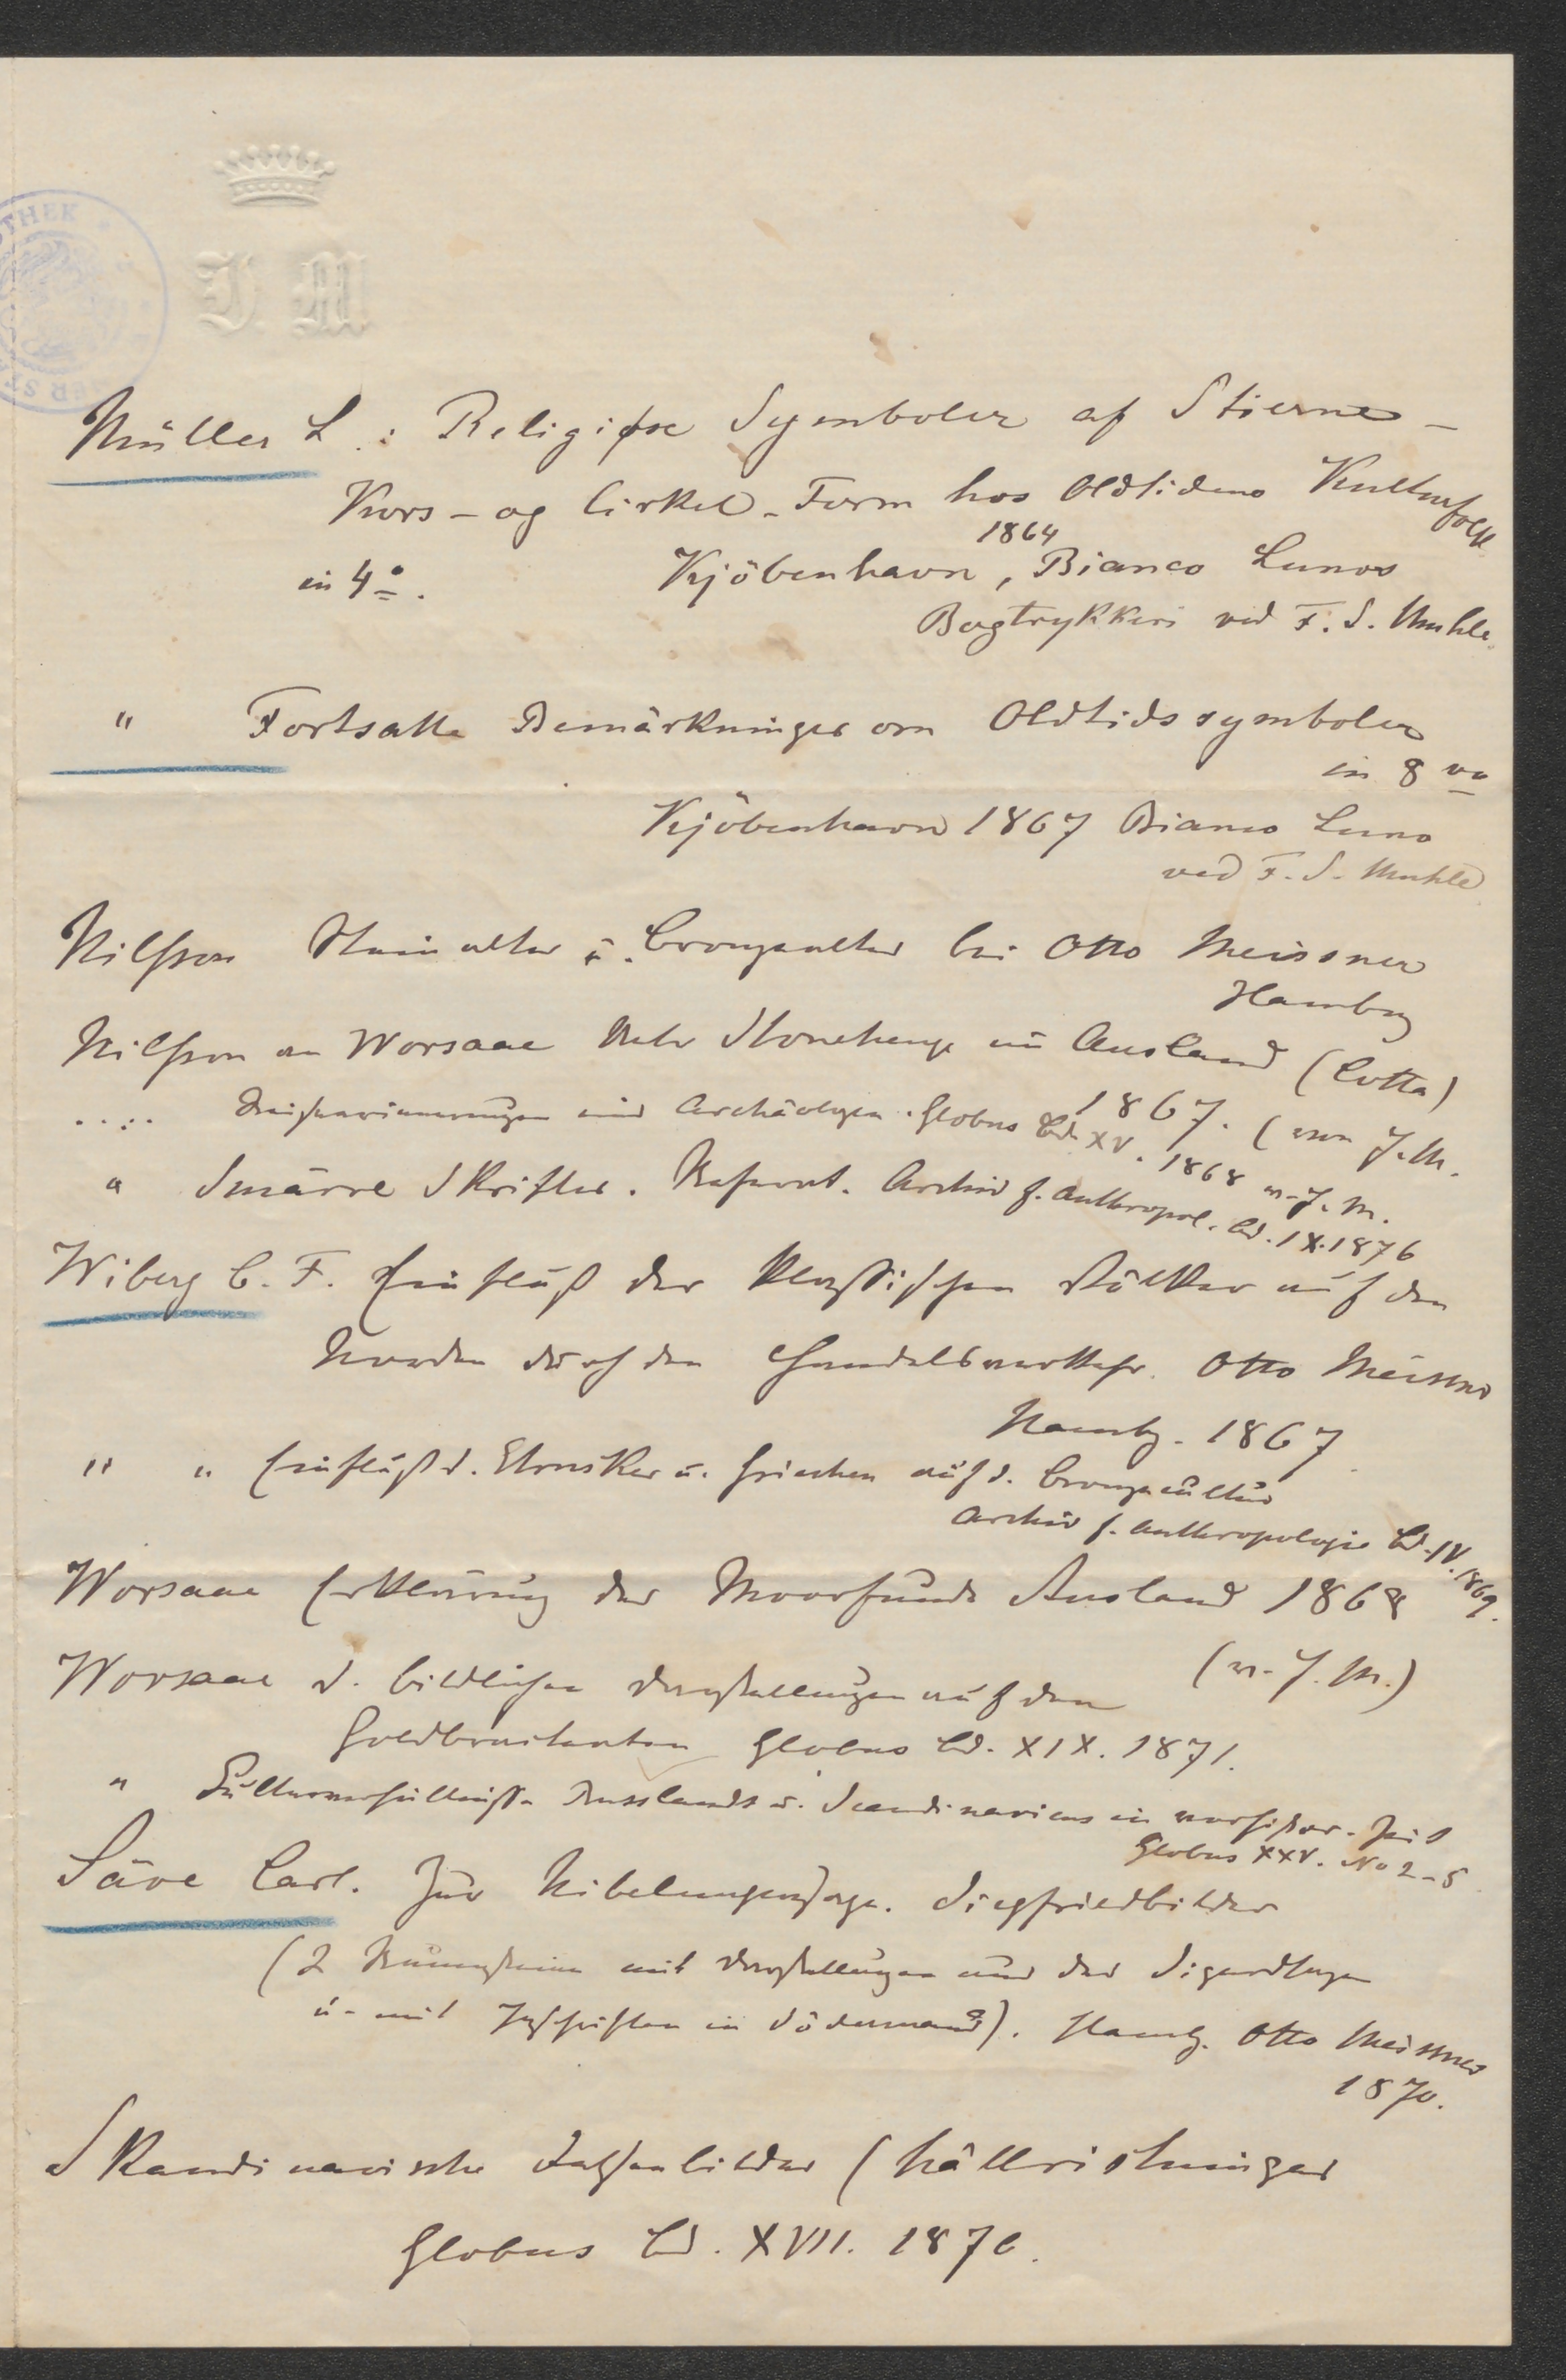 THEK
J. M
Müller L. : Religiøse Symboler af Stierne-
Kors- og Cirkel-Form hos Oldtidens Kulturfolk
1864
in 4°. Kjöbenhavn, Bianco Lunos
Bogtrykkeri ved F. S. Muhle.
" Fortsatte Bemärkninger om Oldtidssymboler
in 8 vo
Kjöbenhavn 1867 Bianco Luno
ved F. S. Muhle
Nilsson Steinalter u. Bronzealter bei Otto Meissner
Hamburg
Nilsson an Worsaae Stonehenge im Ausland (Cotta)
1867. (von J. M.
.... Reiseerinnerungen eines Archäologen. Globus Bd. XV. 1868 v. J. M.
" Smärre Skrifter. Referat. Archiv f. Anthropol. Bd. IX. 1876
Wiberg C. F. Einfluß der klassischen Völker auf den
Norden durch den Handelsverkehr. Otto Meissner
Hambg. 1867
" " Einfluß d. Etrusker u. Griechen auf d. Bronzecultur
Archiv f. Anthropologie Bd. IV. 1869.
Worsaae Erklärung der Moorfunde Ausland 1868
(v. J. M.)
Worsaae d. bildlichen Darstellungen auf den
Goldbracteaten Globus Bd. XIX. 1871.
" Culturverhältnisse Russlands u. Scandinaviens in vorhistor. Zeit
Globus XXV. No 2-5
Säve Carl. Zur Nibelungensage. Siegfriedbilder
(2 Runensteine mit Darstellungen aus der Sigurdsage
u. mit Inschriften in Södermanld). Hambg. Otto Meissner
1870.
Skandinavische Felsenbilder (hällristningar
Globus Bd. XVII. 1870.